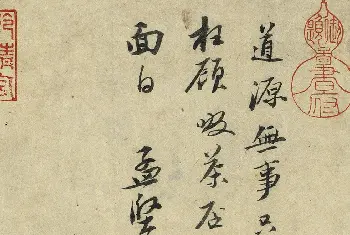 道源無事只
枉顧啜茶否
面白 孟堅